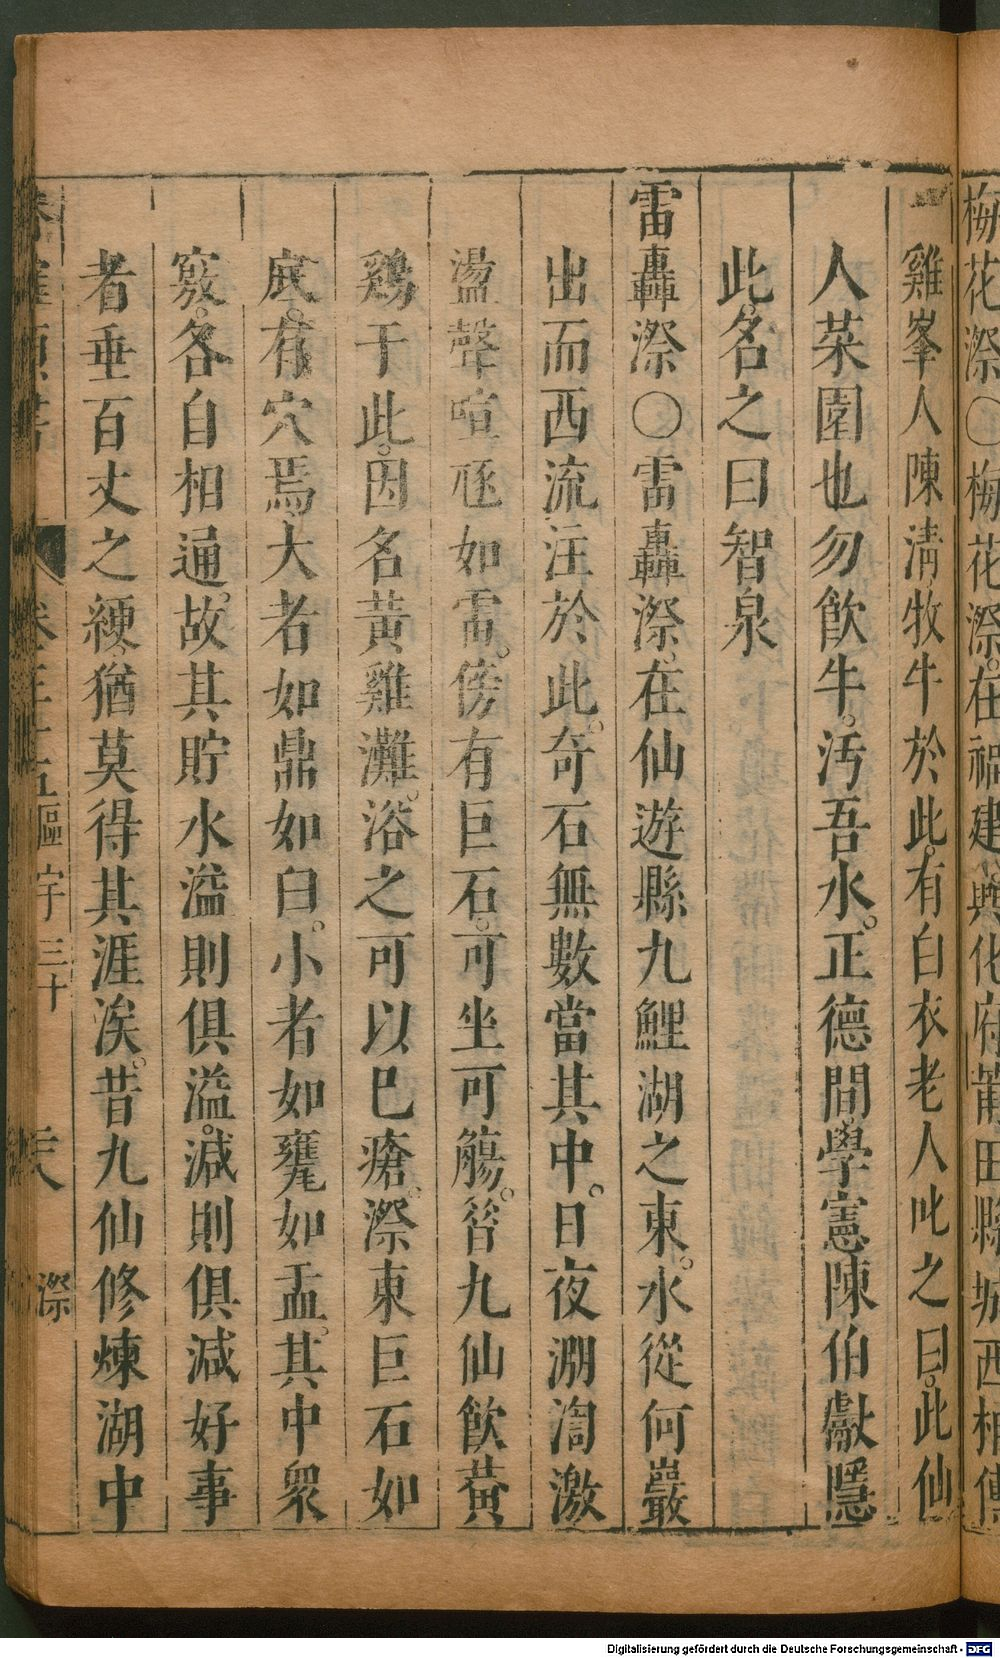 梅花漈○梅花漈。在福建興化府莆田縣城西相傳
雞峯人陳淸牧牛於此。有白衣老人叱之曰。此仙
人菜園也勿飮牛。汚吾水。正德間。學憲陳伯獻隱
此。名之曰智泉
雷轟漈○雷轟漈。在仙遊縣九鯉湖之東。水從何巖
出而西流注於此。奇石無數當其中。日夜㶁渹激
盪聲喧豗如雷。傍有巨石。可坐可觴。昝九仙飮黃
鷄于此。因名黃雞灘。浴之可以已瘡。漈東巨石如
底。有穴焉。大者如鼎如臼。小者如甕如盂。其中衆
竅。各自相通。故其貯水溢則俱溢。減則俱減好事
者垂百丈之綆。猶莫得其涯涘。昔九仙修煉湖中
區宇三十 漈
Digitalisierung gefördert durch die Deutsche Forschungsgemeinschaft - DFG